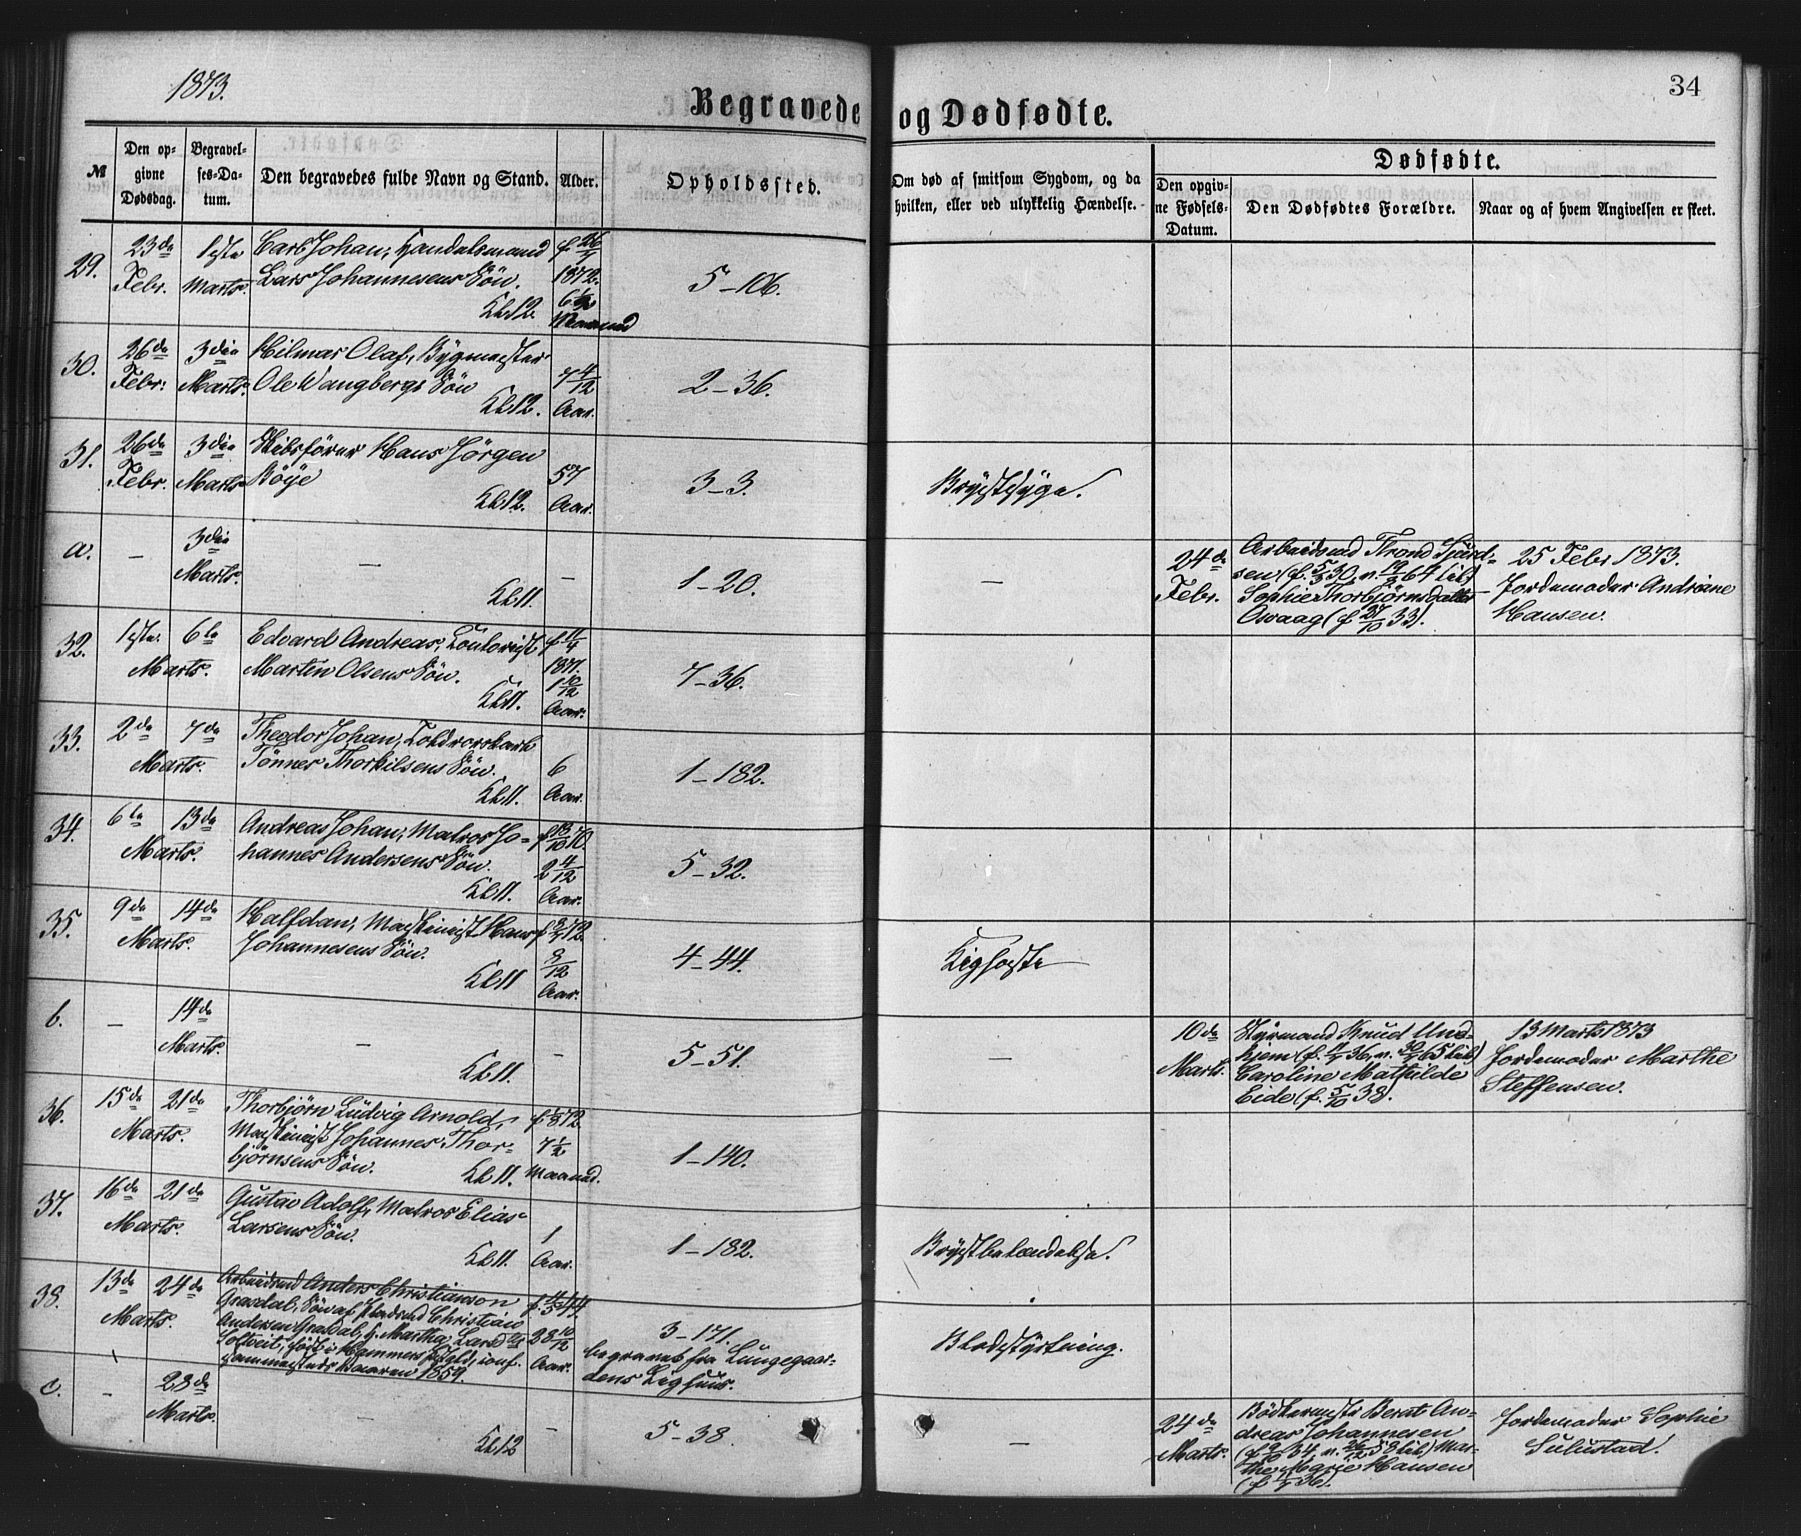 1873.
34
Begravede og Dødfødte.
№
Den opgivne Dødsdag.
Begravelses-Datum.
Den begravedes fulde Navn og Stand.
Alder.
Opholdssted.
Om død af smitsom Sygdom, og da hvilken, eller ved ulykkelig Hændelse.
Dødfødte.
Den opgivne Fødsels-Datum.
Den Dødfødtes Forældre.
Naar og af hvem Angivelsen er skeet.
29. 23de Febr. 1ste Marts.
Carl Johan, Handelsmand
Lars Johannesens Søn.
Kl. 12.
1872.
Maaned
5-106.
30. 26de Febr. 3die Marts.
Hilmar Olaf, Bygmester
Ole Wangbergs Søn
Kl. 12.
7 4/12 Aar.
2-36.
31. 26de Febr. 3die Marts
Skibsfører Hans Jörgen
Böye
Kl. 12.
57 Aar.
3-3.
Brystsyge.
a. - 3die Marts.
-
Kl. 11.
-
1-20.
-
24de Febr.
Arbeidsmd Trond Sjurd-
sen (f. 5/3 30, v. 19/3 64 til)
Sophie Thorbjörnsdatter
Osvaag (f. 27/10 33).
25 Febr 1873.
Jordemoder Andrine
Hansen.
32. 1ste. Marts. 6te
Edvard Andreas, Contorist
Martin Olsens Søn.
Kl. 11.
f. 11/4
1871.
1 10/12
Aar.
7-36.
33. 2de Marts. 7de
Theodor Johan, Toldrorskarl
Tönnes Thorkilsens Søn.
Kl. 11.
6
Aar.
1-182.
34. 6te Marts. 13de
Andreas Johan, Matros Jo-
hannes Andersens Søn.
Kl. 11.
f. 13/10 70.
2 4/12
Aar.
5-32.
35. 9de Marts. 14de
Halfdan, Maskinist Hans
Johannesens Søn.
Kl. 11
9/12
Aar.
4-44.
Kighoste
b. - 14de Marts.
-
Kl. 11.
-
5-51.
-
10de Marts.
Styrmand Knud Und-
hjem (f. 11/7 36, v. 30/7 65 til)
Caroline Mathilde
Eide (f. 5/10 38.
13 Marts 1873
Jordemoder Marthe
Steffensen.
36. 15de Marts. 21de
Thorbjörn Ludvig Arnold,
Maskinist Johannes Thor-
björnsens Søn.
Kl. 11.
f. 1/8 72.
7 1/2
Maaned.
1-140.
37. 16de Marts. 21de
Gustav Adolf, Matros Elias
Larsens Søn.
Kl. 11.
1
Aar.
1-182.
Brystbetændelse.
38. 13de Marts. 24de
Arbeidsmd Anders Christianson
Grasdal, Søn af Pladsmd Christian
Andersen Grasdal, & Martha Larsd
Toftveit, født i Hammers Prgjeld, conf.
sammesteds Vaaren 1859.
f. 4/5 44
28 10/12
Aar.
3-171.
begravet fra Lungegaar-
dens Lighuus.
Blodstyrtning.
c. - 28de Marts.
-
Kl. 12
-
5-38.
-
24de Marts.
Bödkermester Berat An-
dreas Johannesen
34 v. 26/12 58 til) Mar-
the Marie Hansen
36).
Jordemoder Sophie
Sulustad.